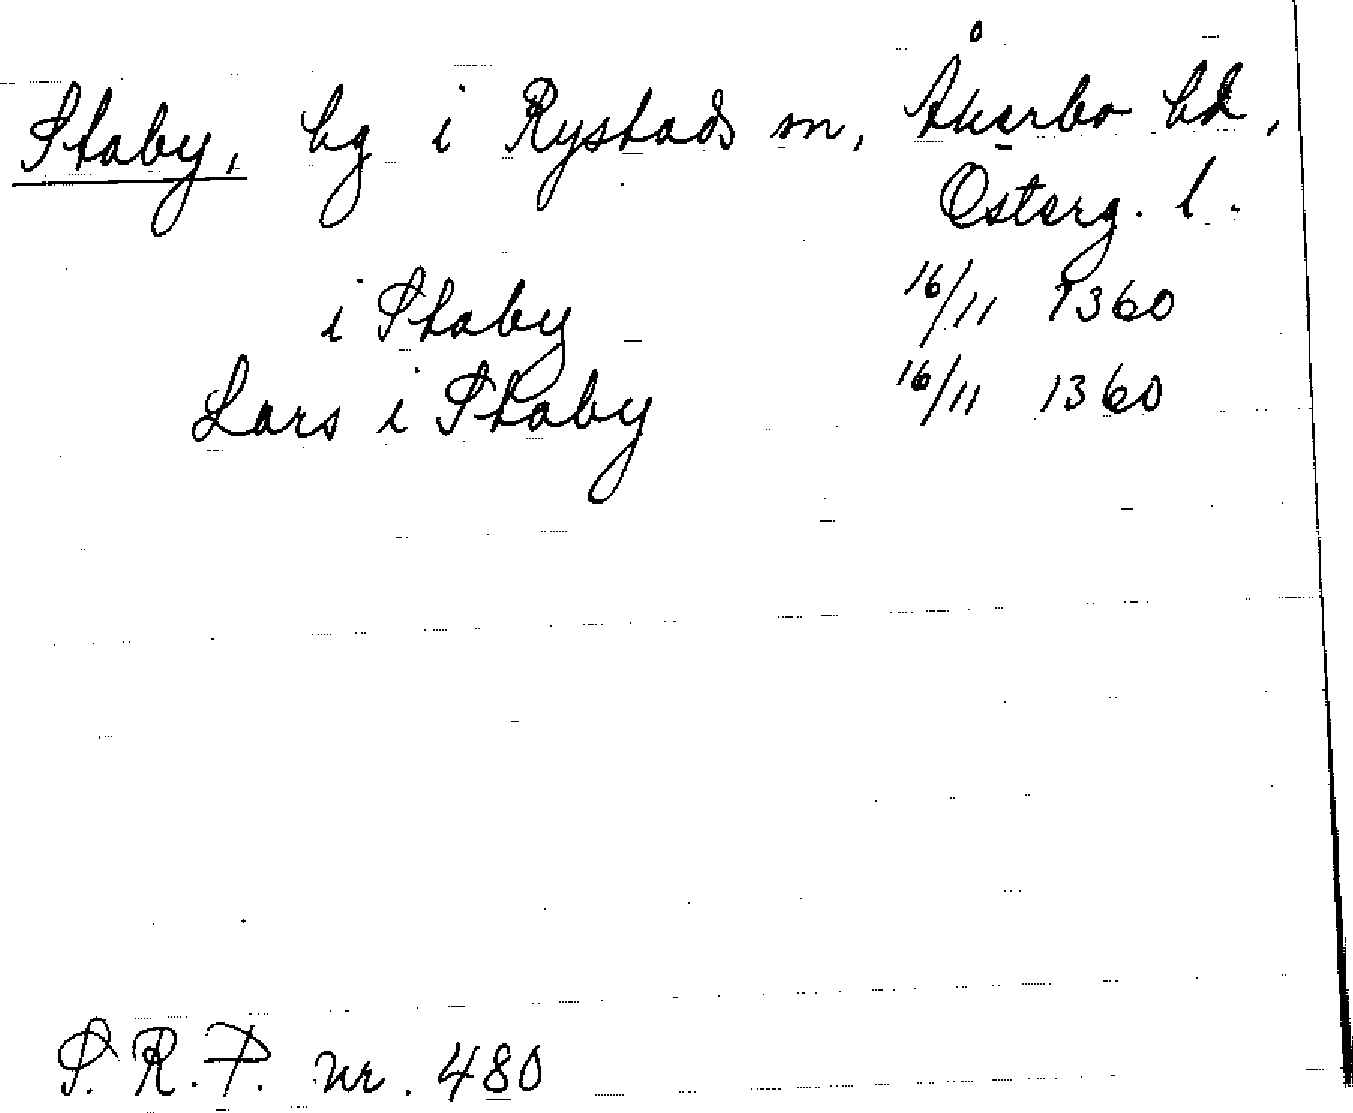 Staby, by i Rystads sn, Åkerbo hd,
Österg. l.
i Staby 16/11 1360
Lars i Staby 16/11 1360
S.R.P. nr. 480